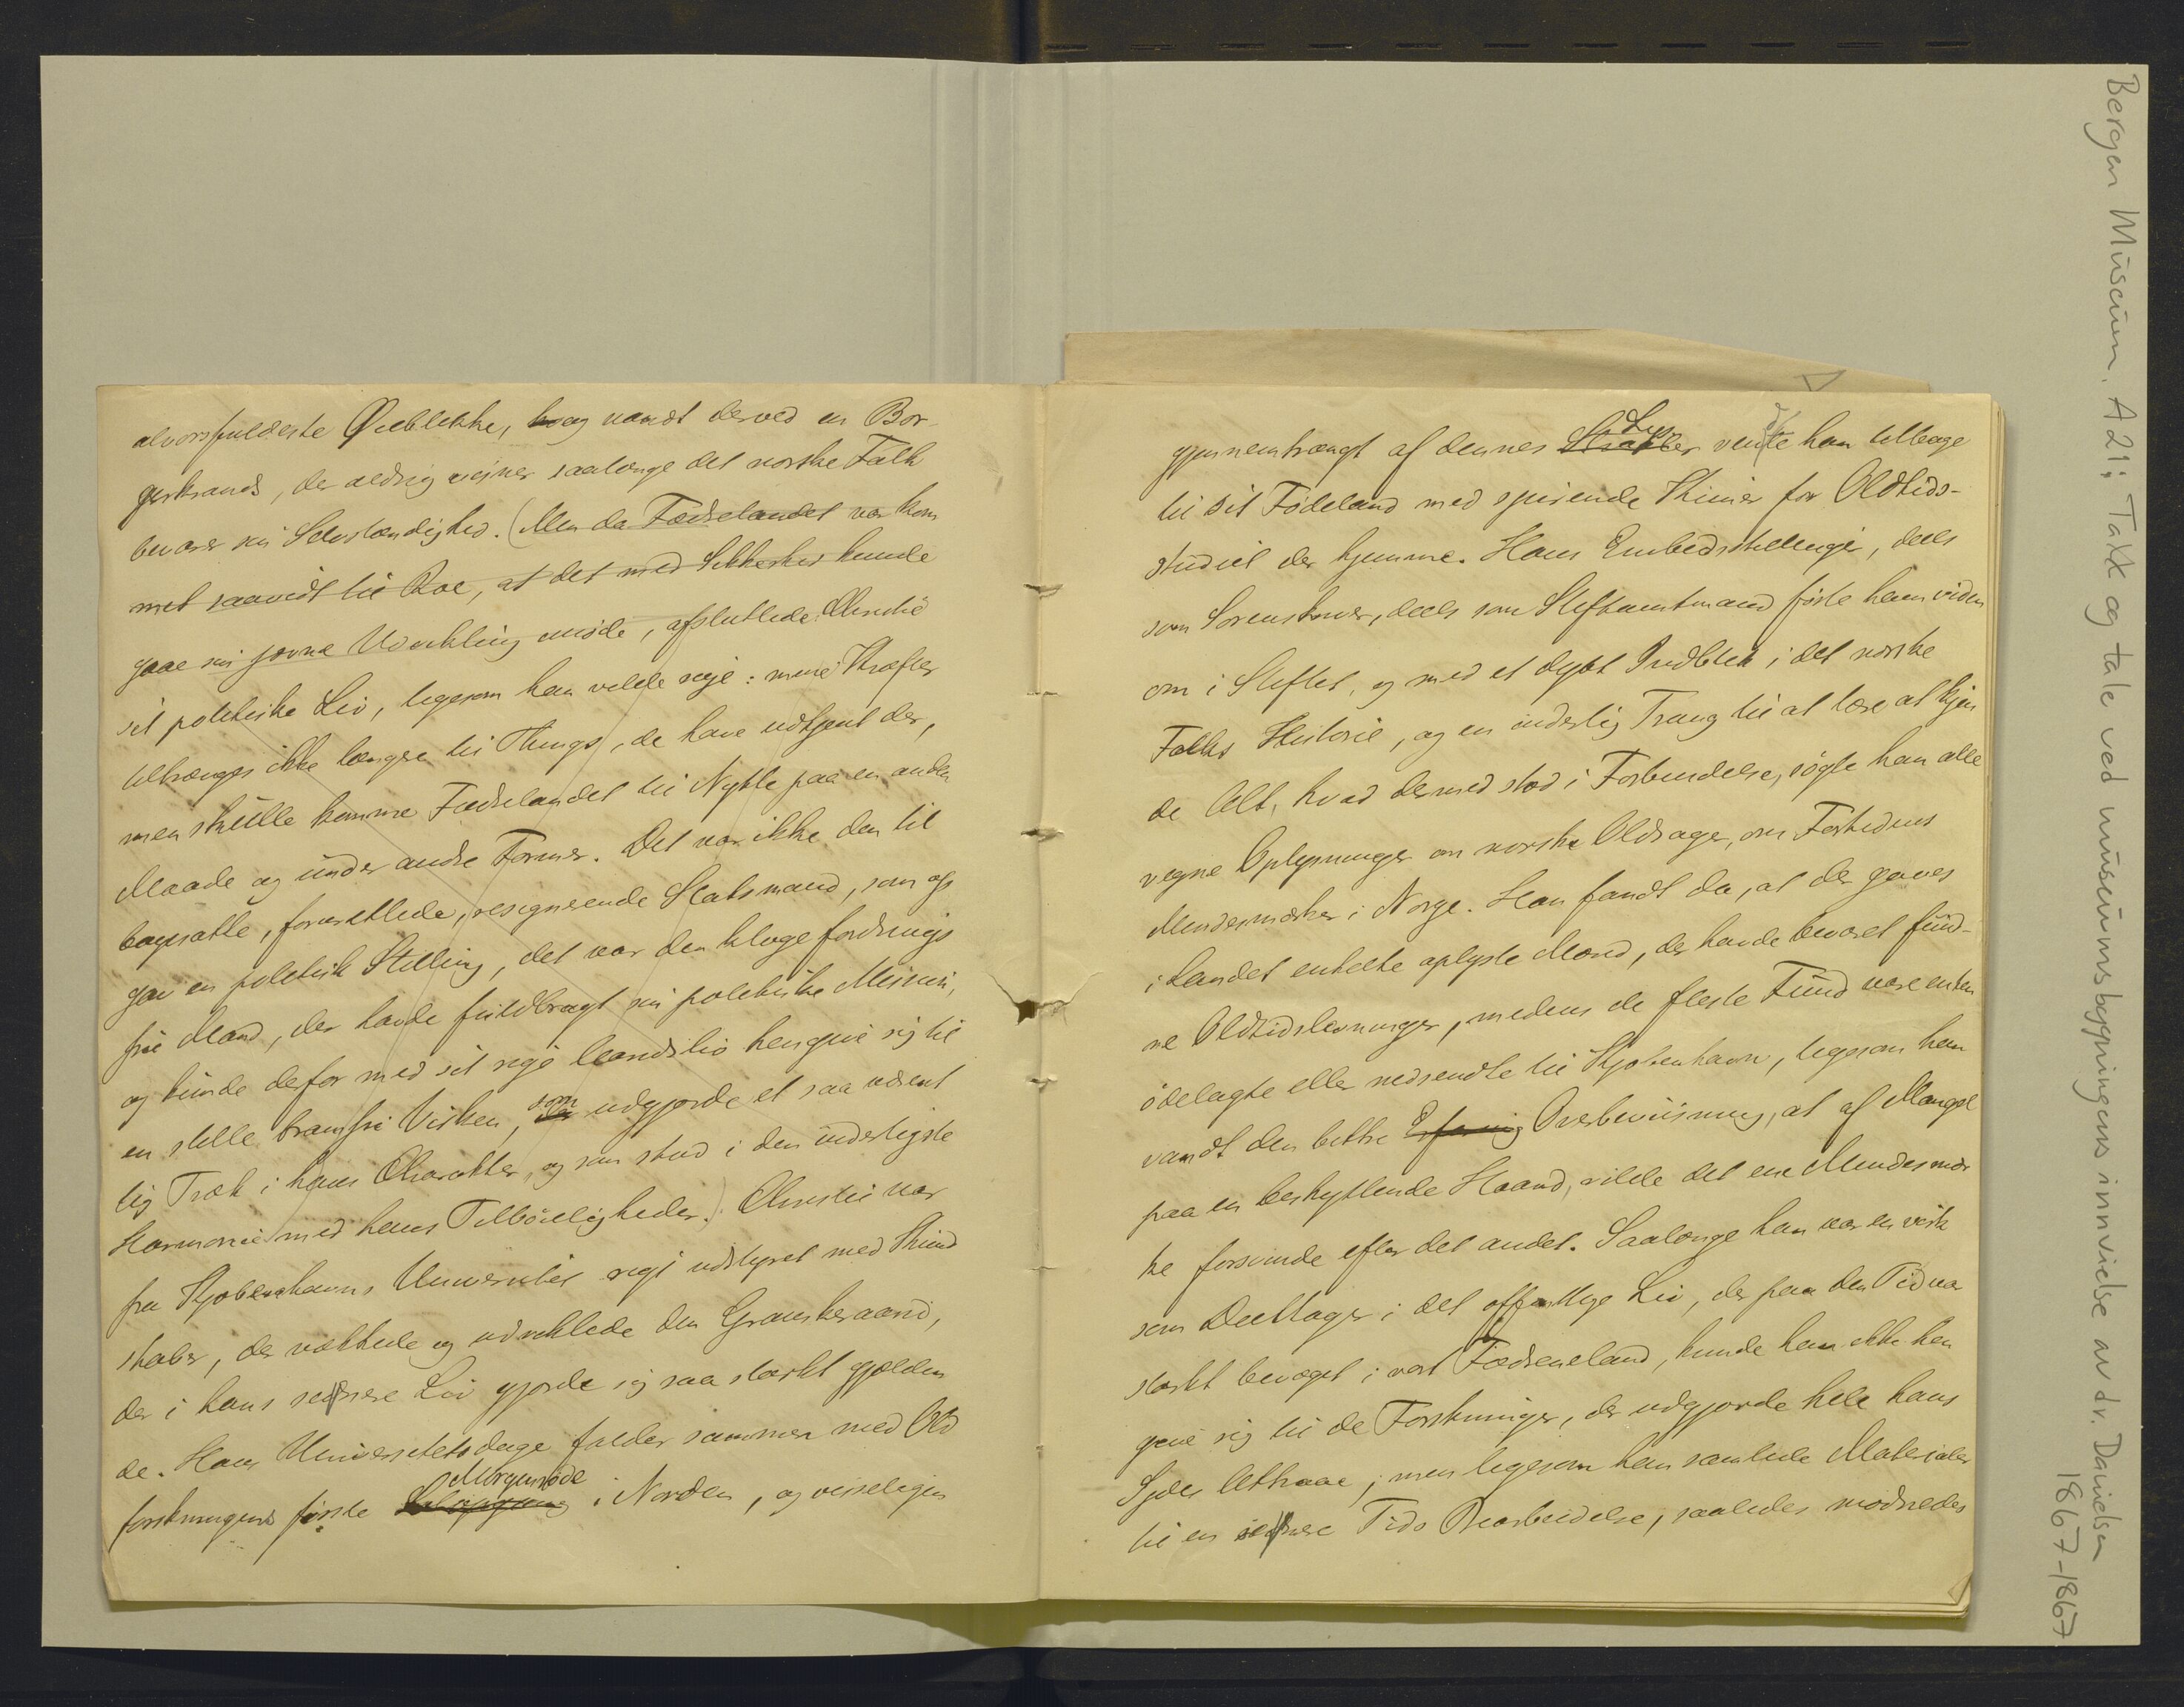 alvorsfuldeste Øieblikke, og vandt derved en Bor-
gerkrands, der aldrig visner saalænge det norske Folk
bevarer sin Selvstændighed. (Men da Fædrelandet var kom
met saavidt til Roe, at det med Sikkerhed kunde
gaae sin jævne Udvikling imøde, afsluttede Christie
sit politiske Liv, ligesom han vilde sige: mine Kræfter
tiltrænges ikke længere til Things, de have udtjent der,
men skulle komme Fædrelandet til Nytte paa en anden
Maade og under andre Former. Det var ikke den til
bagesatte, forurettede, resignerende Statsmand, som op
gav en politisk Stilling, det var den kloge fordrings
frie Mand, der havde fuldbragt sin politiske Mission,
og kunde derfor med sit rige Aandsliv hengive sig til
en stille bramfri Virken, som udgjorde et saa væsent
lig Træk i hans Charakter, og som stod i den inderligste
Harmonie med hans Tilbøieligheder.) Christie var
fra Kjøbenhavns Universitet rigt udstyret med Kund
skaber, der vakkede og udviklede den Granskeraand,
der i hans sednere Liv gjorde sig saa stærkt gjælden
de. Hans Universitetsdage falder sammen med Old
forskningens første Morgenrøde i Norden, og visseligen
gjennemtrængt af dennes Lys vendte han tilbage
til sit Fødeland med spirende Kimer for Oldtids-
studiet der hjemme. Hans Embedsstillinger, deels
som Sorenskriver, deels som Stiftamtmand førte ham viden
om i Stiftet, og med et dybt Indblik i det norske
Folks Historie, og en inderlig Trang til at lære at kjen
de Alt, hvad dermed stod i Forbindelse, søgte han alle
vegne Oplysninger om norske Oldsager, om Fortidens
Mindesmærker i Norge. Han fandt da, at der gaves
i Landet enkelte oplyste Mænd, der havde bevaret fund-
ne Oldtidslevninger, medens de fleste Fund vare enten
ødelagte eller nedsendte til Kjøbenhavn, ligesom han
vandt den bittre Erfaring Overbeviisning, at af Mangel
paa en beskyttende Haand, vilde det ene Mindesmær
ke forsvinde efter det andet. Saalænge han var en virk
som Deeltager i det offentlige Liv, der paa den Tid var
stærkt bevæget i vort Fædreneland, kunde han ikke hen
give sig til de Forskninger, der udgjorde hele hans
Sjæls Attraae; men ligesom han samlede Materialer
til en sednere Tids Bearbeidelse, saaledes modnedes
Bergen Museum. A 21: Takk og tale ved museumsbygningens innvielse av dr. Danielsen
1867-1867